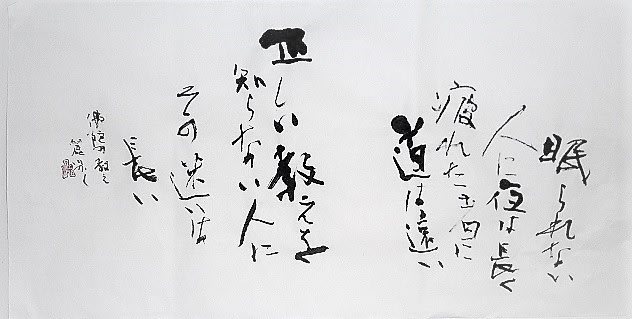 眠られない
人に夜は長く
疲れた者に
道は遠い
正しい教えを
知らない人に
その迷いは
長い